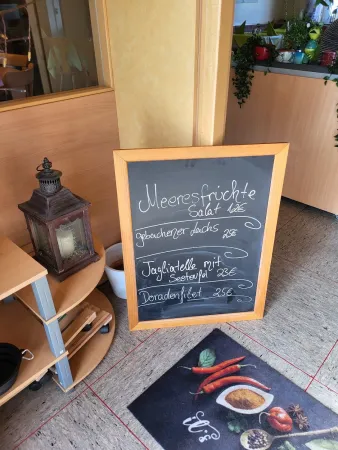 Meeresfrüchte
Salat 12€
gebackener Lachs
25€
Tagliatelle mit
Seeteufel 23€
Doradenfilet 25€